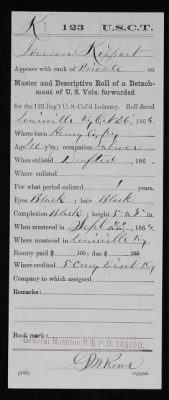 K | 123 | U.S.C.T.
Appears with rank of Private on
Muster and Descriptive Roll of a Detach-
ment of U. S. Vols. forwarded
for the 123 Reg't U. S. Col'd Infantry. Roll dated
Louisville Ky Oct 26, 1864.
Where born Henry Co Ky
Age y'rs; occupation
When enlisted Drafted, 186 .
Where enlisted
For what period enlisted 1 years.
Eyes Black; hair Black
Complexion Black; height 5 ft. in.
When mustered in Sept 22, 1864.
Where mustered in Louisville Ky
Bounty paid $ 100; due $ 100
Where credited 5 Cong Dist Ky
Company to which assigned
Remarks:
Book mark:
General Notation R & P O
Copyist.